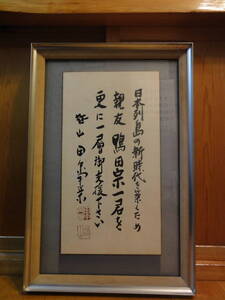 日本列島の新時代を築くため
親友 鴨田宗一君を
更に一層御支援下さい
田中角栄